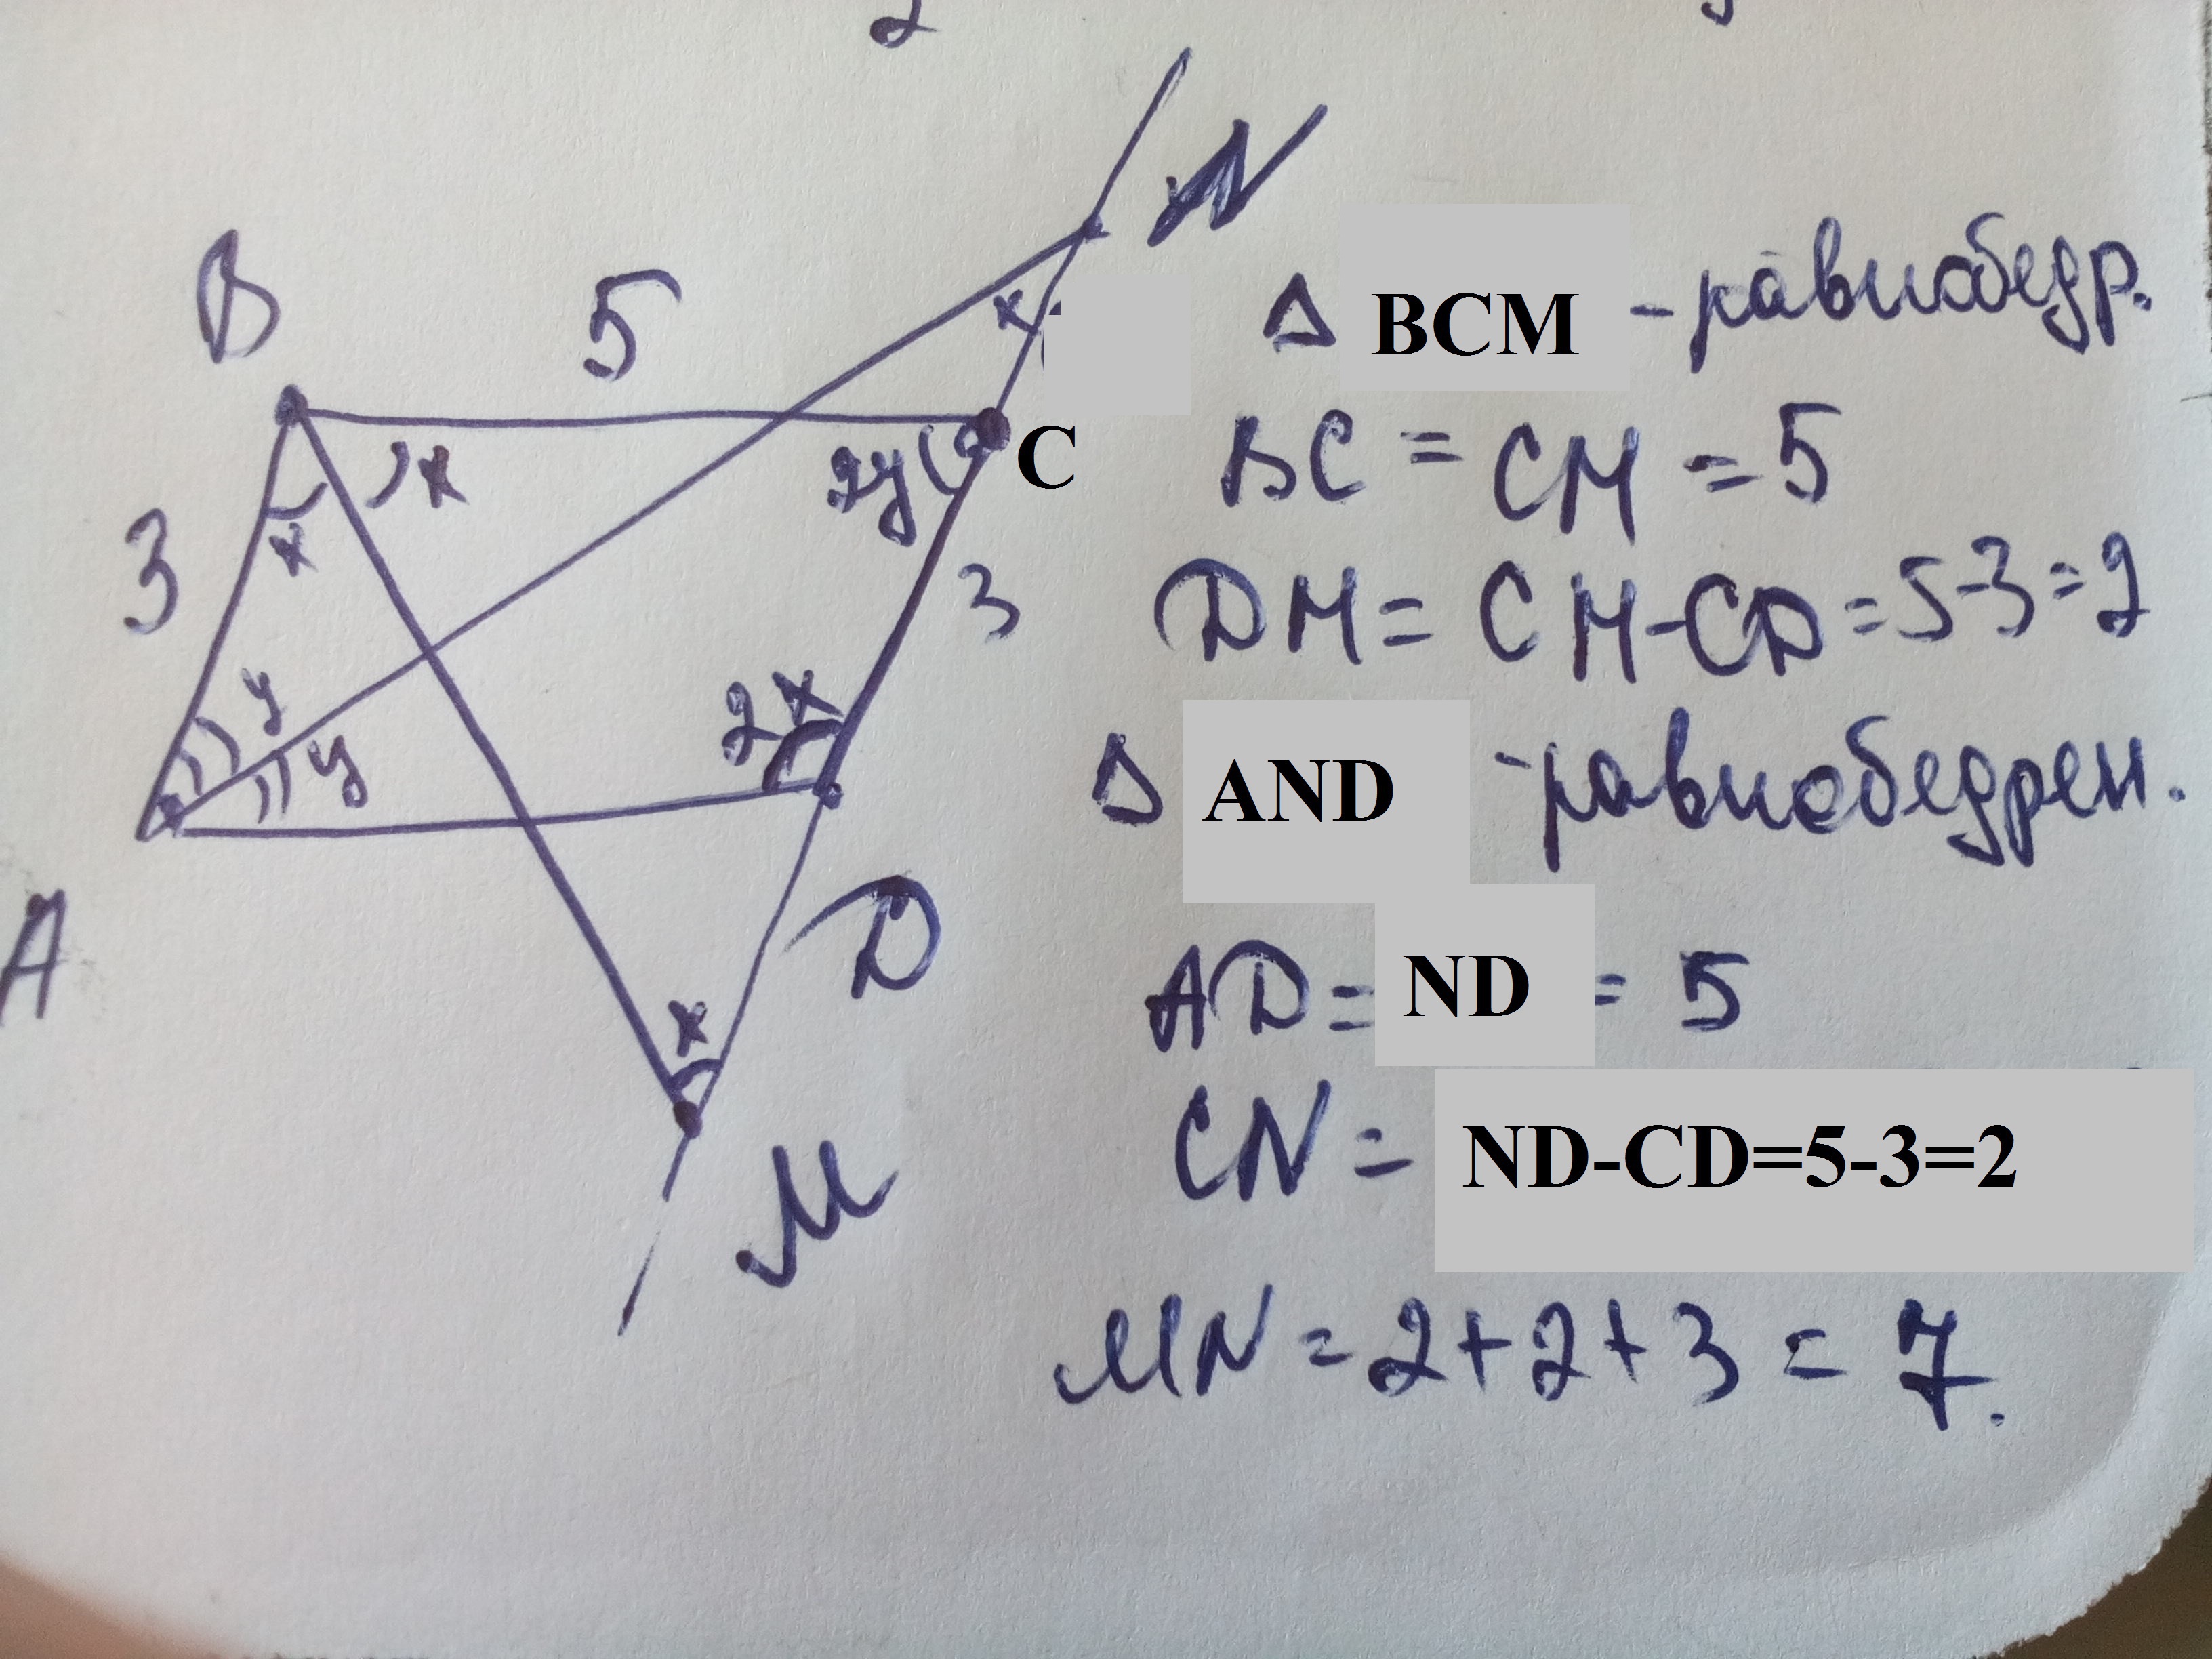 2
N
B
5
x
Δ BCM - равнобедр.
x
2y
C
BC = CM = 5
3
x
3
DM = CM-CD = 5-3=2
y
y
2x
Δ AND -равнобедрен.
D
A
AD= ND = 5
x
CN = ND-CD=5-3=2
M
MN = 2+2+3 = 7.